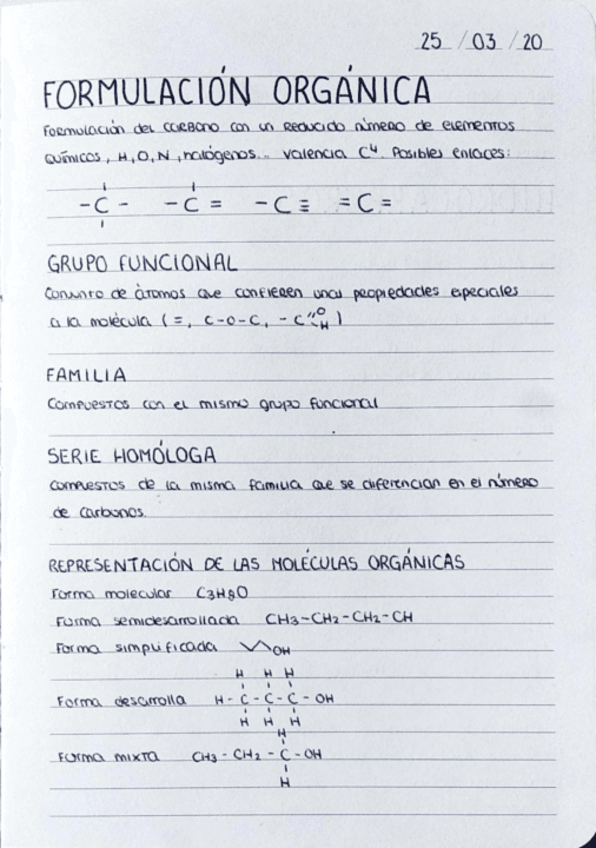 25 / 03 / 20
FORMULACIÓN ORGÁNICA
Formulación del carbono con un reducido número de elementos
químicos, H, O, N, halógenos... valencia C⁴. Posibles enlaces:
-C- -C= -C≡ =C=
GRUPO FUNCIONAL
Conjunto de átomos que confieren unas propiedades especiales
a la molécula (=, C-O-C, -C=O H)
FAMILIA
Compuestos con el mismo grupo funcional
SERIE HOMÓLOGA
compuestos de la misma familia que se diferencian en el número
de carbonos.
REPRESENTACIÓN DE LAS MOLÉCULAS ORGÁNICAS
Forma molecular C3H8O
Forma semidesarrollada CH3-CH2-CH2-CH
Forma simplificada OH
H H H
Forma desarrolla H-C-C-C-OH
H H H
H
Forma mixta CH3-CH2-C-OH
H